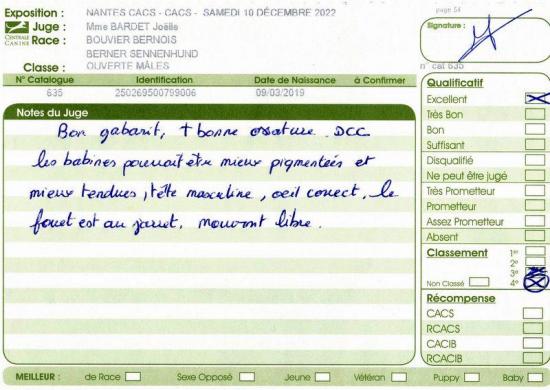 Exposition : NANTES CACS - CACS - SAMEDI 10 DÉCEMBRE 2022
page 54
CENTRALE CANINE
Juge : Mme BARDET Joëlle
Race : BOUVIER BERNOIS
BERNER SENNENHUND
Classe : OUVERTE MÂLES
Signature :
n° cat 635
N° Catalogue Identification Date de Naissance à Confirmer
635 250269500799006 09/03/2019
Notes du Juge
Bon gabarit, + bonne ossature. DCC
les babines pourrait être mieux pigmentées et
mieux tendues, tête masculine, oeil correct, le
fouet est au jarret, mouvont libre.
Qualificatif
Excellent
Très Bon
Bon
Suffisant
Disqualifié
Ne peut être jugé
Très Prometteur
Prometteur
Assez Prometteur
Absent
Classement 1er
2e
3e
Non Classé 4e
Récompense
CACS
RCACS
CACIB
RCACIB
MEILLEUR : de Race Sexe Opposé Jeune Vétéran Puppy Baby